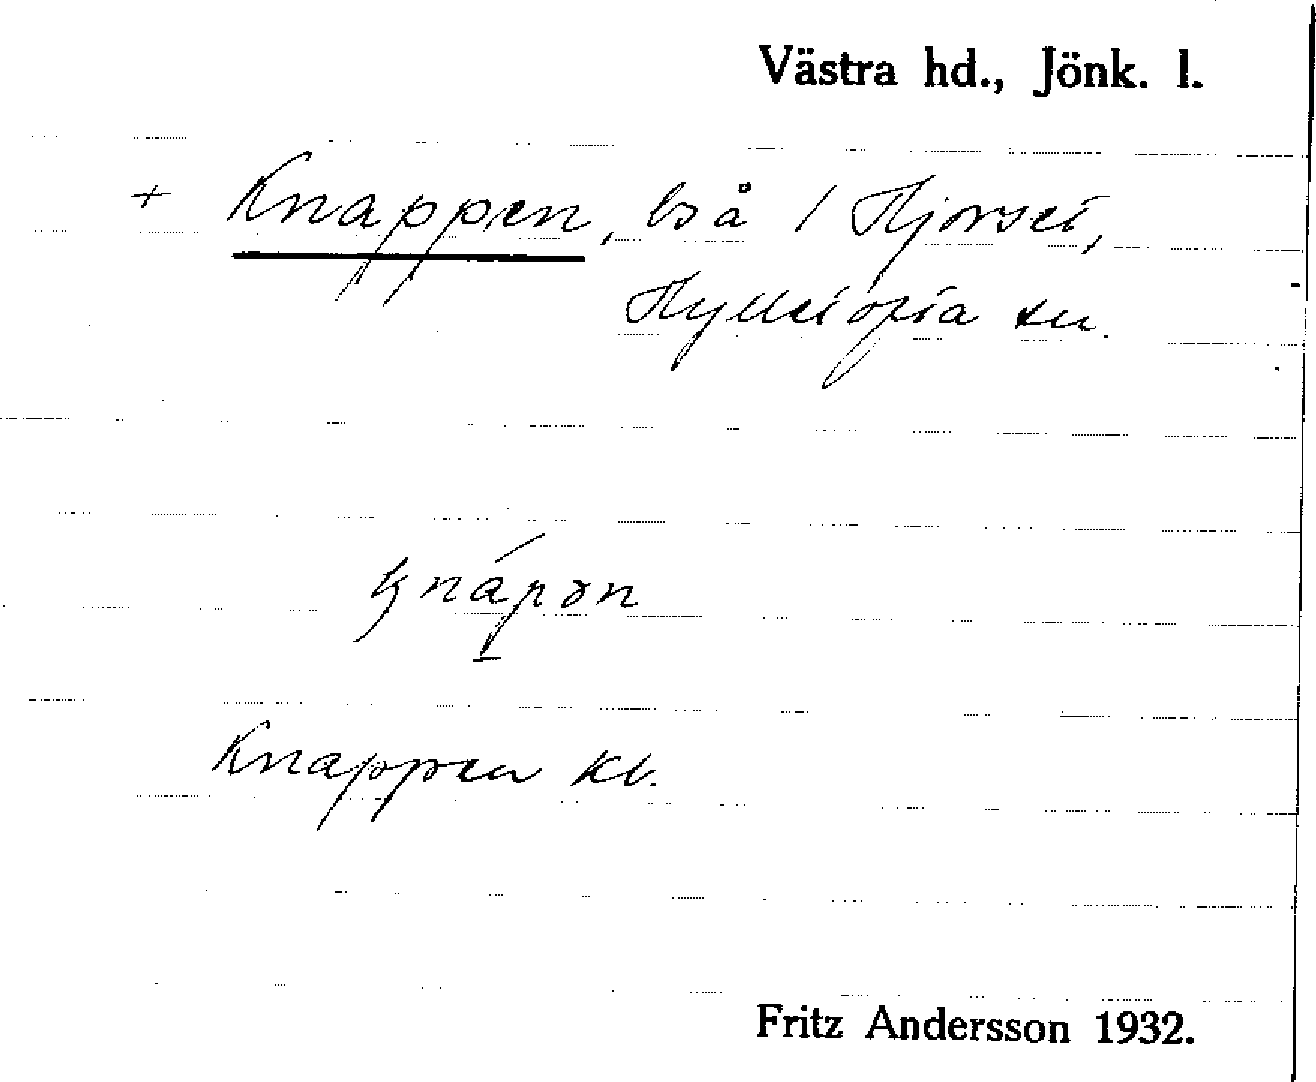 Västra hd., Jönk. l.
+ Knappen, bs å / Hjorset,
Hylletofta sn.
knápən
Knappen kb.
Fritz Andersson 1932.